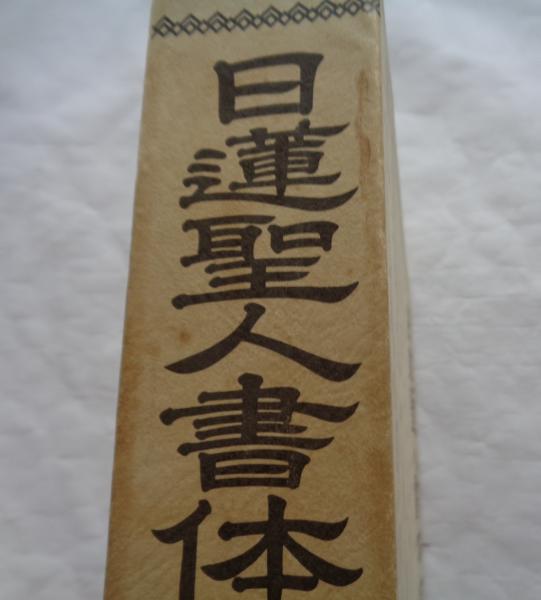 日蓮聖人書体